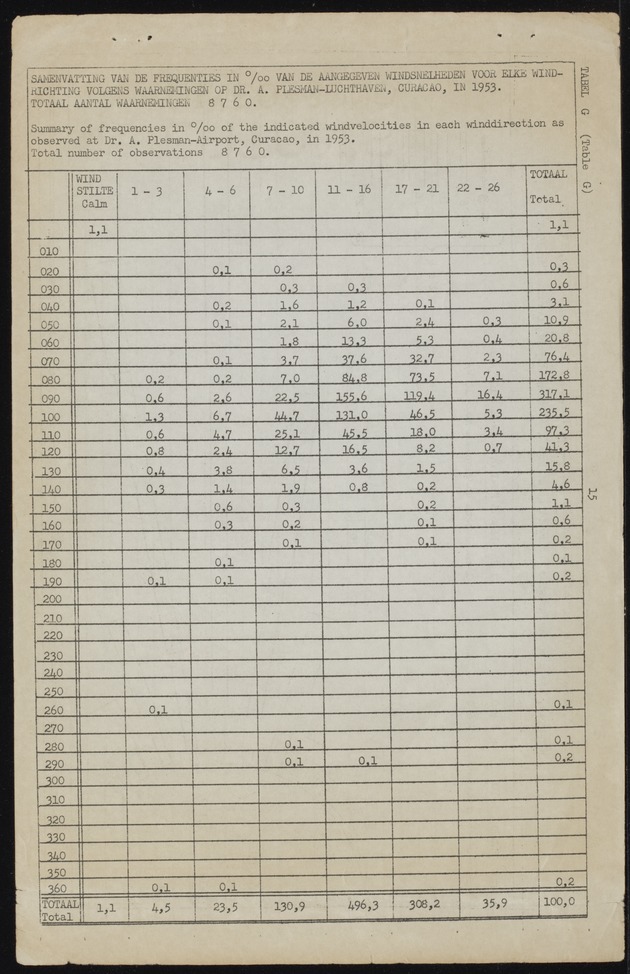 SAMENVATTING VAN DE FREQUENTIES IN °/oo VAN DE AANGEGEVEN WINDSNELHEDEN VOOR ELKE WIND-
RICHTING VOLGENS WAARNEMINGEN OP DR. A. PLESMAN-LUCHTHAVEN, CURACAO, IN 1953.
TOTAAL AANTAL WAARNEMINGEN 8 7 6 0.
Summary of frequencies in °/oo of the indicated windvelocities in each winddirection as
observed at Dr. A. Plesman-Airport, Curacao, in 1953.
Total number of observations 8 7 6 0.
TABEL G (Table G)
WIND STILTE Calm 1 - 3 4 - 6 7 - 10 11 - 16 17 - 21 22 - 26 TOTAAL Total
1,1 1,1
010
020 0,1 0,2 0,3
030 0,3 0,3 0,6
040 0,2 1,6 1,2 0,1 3,1
050 0,1 2,1 6,0 2,4 0,3 10,9
060 1,8 13,3 5,3 0,4 20,8
070 0,1 3,7 37,6 32,7 2,3 76,4
080 0,2 0,2 7,0 84,8 73,5 7,1 172,8
090 0,6 2,6 22,5 155,6 119,4 16,4 317,1
100 1,3 6,7 44,7 131,0 46,5 5,3 235,5
110 0,6 4,7 25,1 45,5 18,0 3,4 97,3
120 0,8 2,4 12,7 16,5 8,2 0,7 41,3
130 0,4 3,8 6,5 3,6 1,5 15,8
140 0,3 1,4 1,9 0,8 0,2 4,6
150 0,6 0,3 0,2 1,1
160 0,3 0,2 0,1 0,6
170 0,1 0,1 0,2
180 0,1 0,1
190 0,1 0,1 0,2
200
210
220
230
240
250
260 0,1 0,1
270
280 0,1 0,1
290 0,1 0,1 0,2
300
310
320
330
340
350
360 0,1 0,1 0,2
TOTAAL Total 1,1 4,5 23,5 130,9 496,3 308,2 35,9 100,0
15